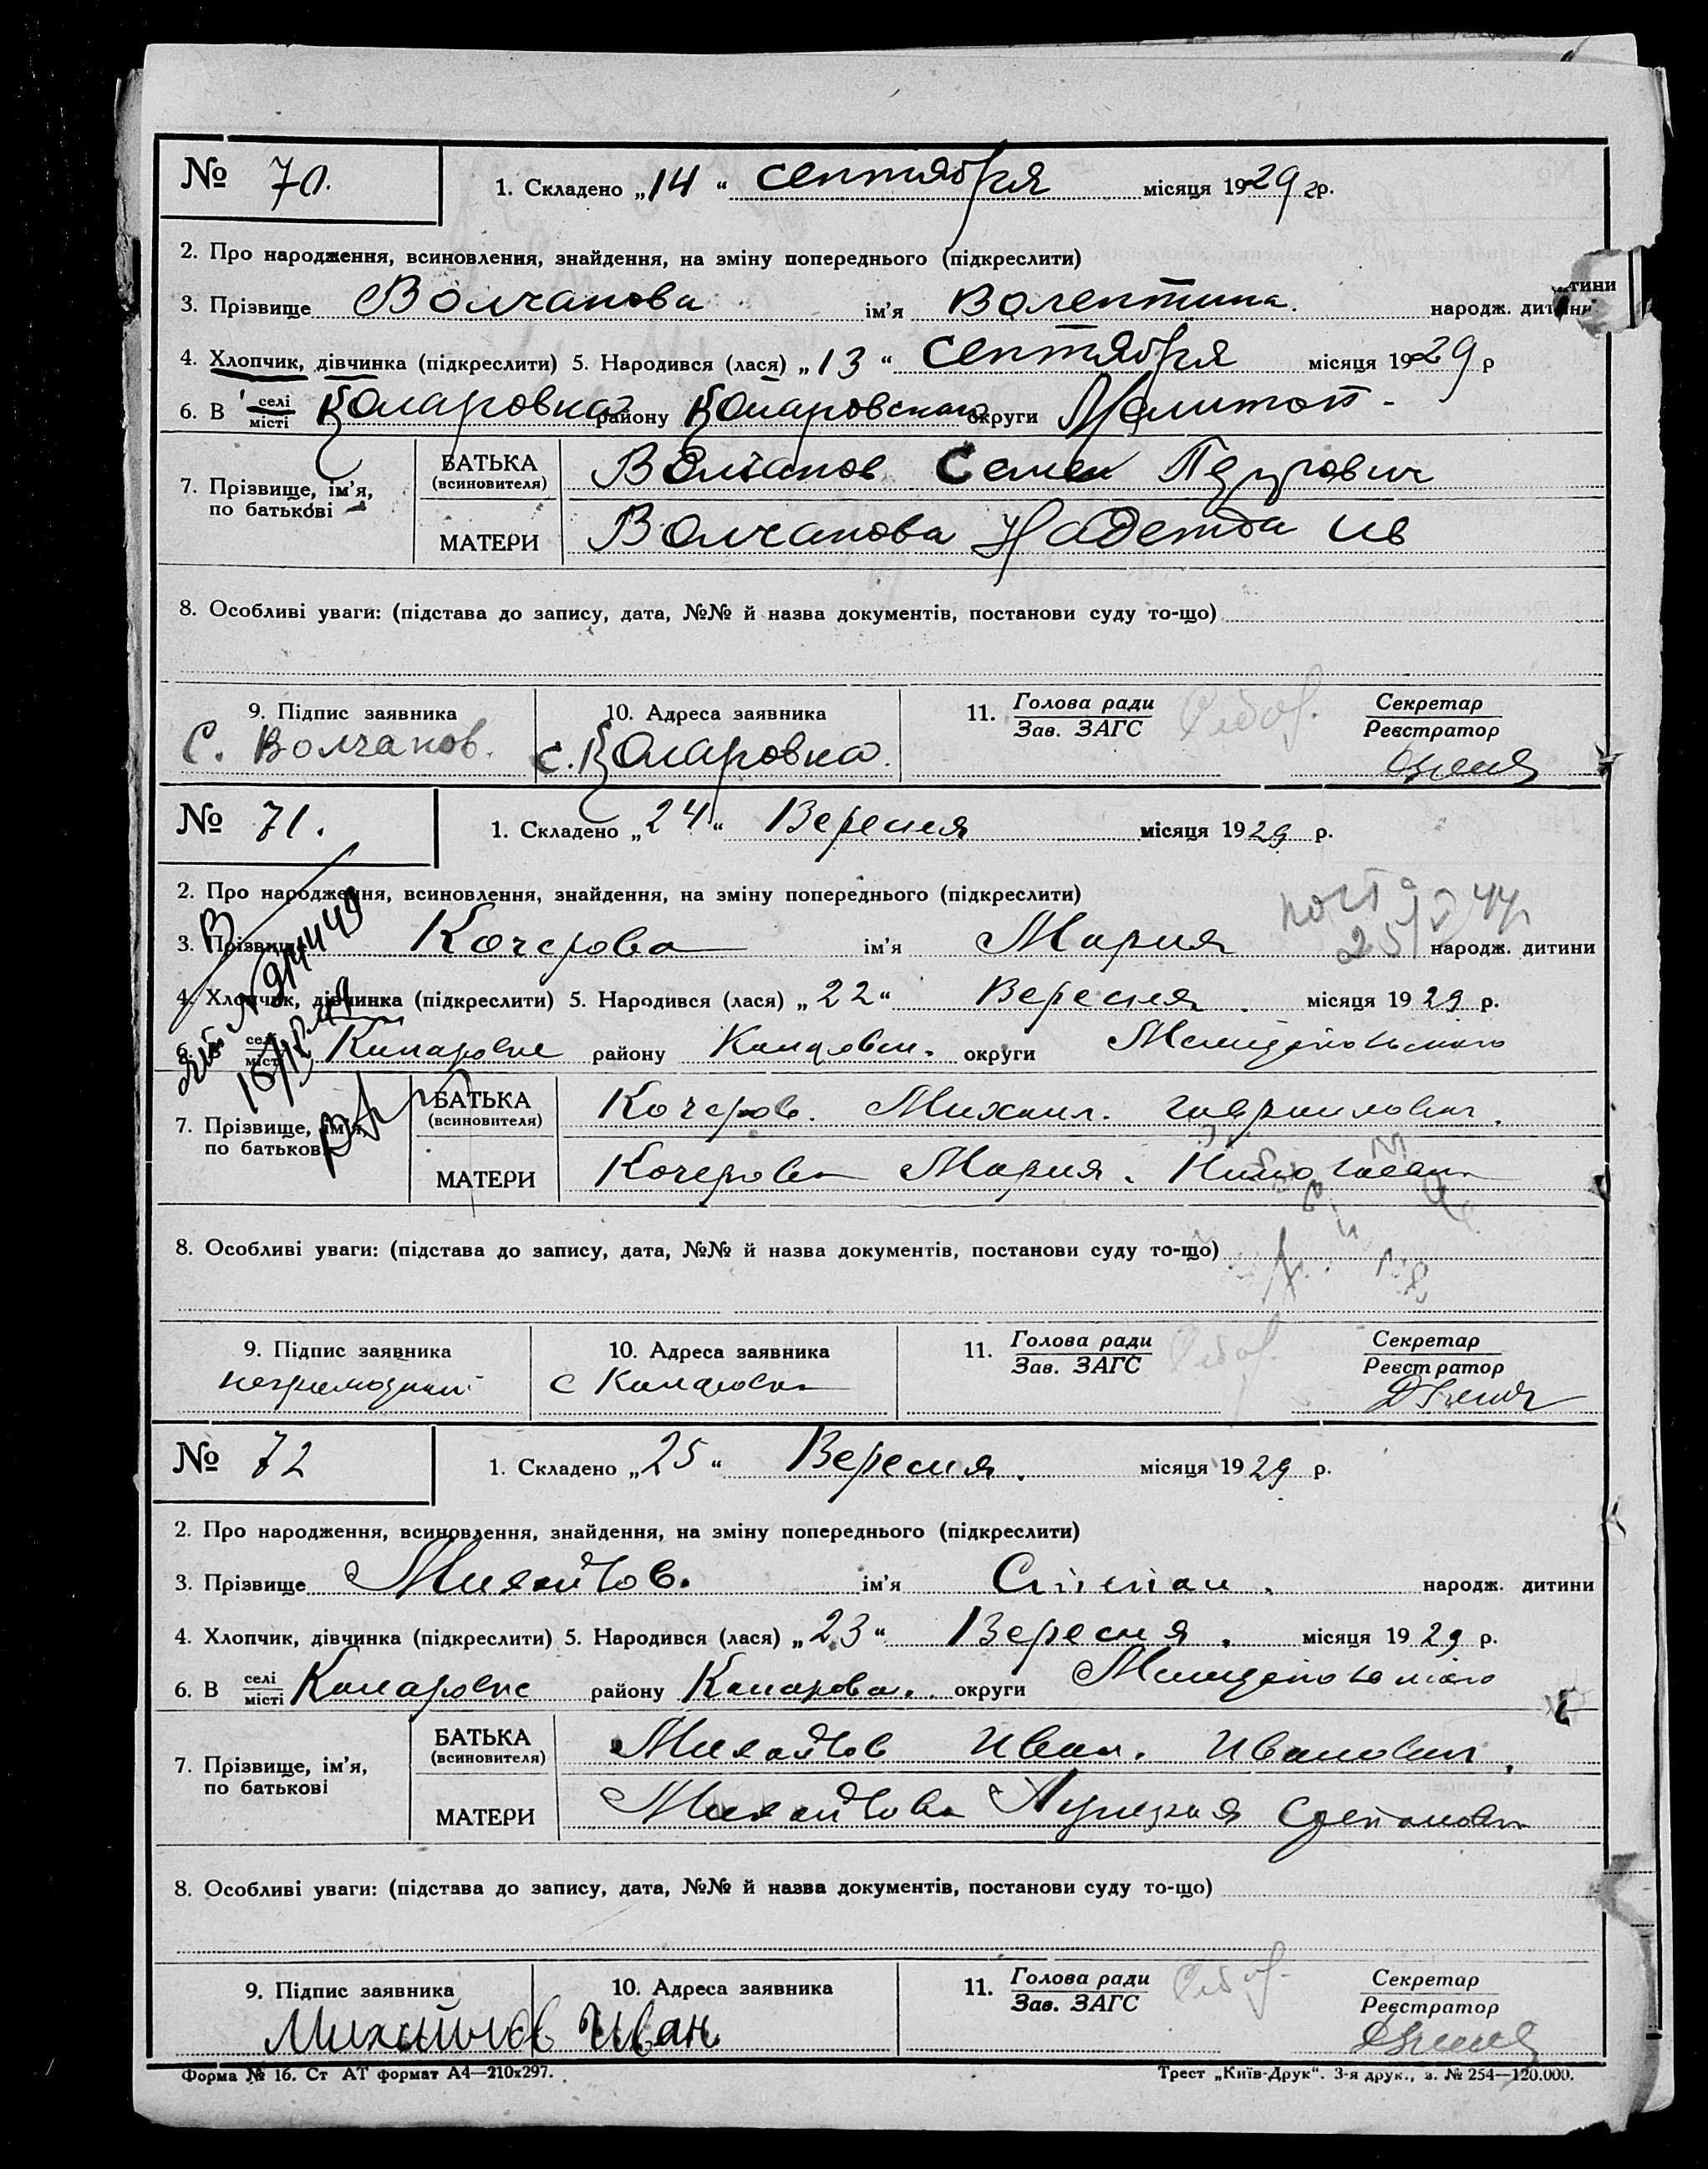 № 70.
1. Складено „14“ сентября місяця 1929 р.
2. Про народження, всиновлення, знайдення, на зміну попереднього (підкреслити)
3. Прізвище Волчанова ім'я Волентина. народж. дитини
4. Хлопчик, дівчинка (підкреслити) 5. Народився (лася) „13“ сентября місяця 1929 р
6. В селі місті Коларовка району Коларовского округи Мелитоп-
7. Прізвище, ім'я, по батькові
БАТЬКА (всиновителя) Волчанов Семен Петрович
МАТЕРИ Волчанова Надежда Ив
8. Особливі уваги: (підстава до запису, дата, №№ й назва документів, постанови суду то-що)
9. Підпис заявника 10. Адреса заявника 11. Голова ради Зав. ЗАГС Секретар Реєстратор
С. Волчанов. с. Коларовка.
№ 71.
1. Складено „24“ Вересня місяця 1929 р.
2. Про народження, всиновлення, знайдення, на зміну попереднього (підкреслити)
3. Прізвище Кочерова ім'я Мария народж. дитини
4. Хлопчик, дівчинка (підкреслити) 5. Народився (лася) „22“ Вересня місяця 1929 р.
6. В селі місті Коларовке району округи
7. Прізвище, ім'я, по батькові
БАТЬКА (всиновителя) Кочеров. Михаил. Гаврилович.
МАТЕРИ Кочерова Мария.
8. Особливі уваги: (підстава до запису, дата, №№ й назва документів, постанови суду то-що)
9. Підпис заявника 10. Адреса заявника 11. Голова ради Зав. ЗАГС Секретар Реєстратор
с Коларовка
№ 72
1. Складено „25“ Вересня. місяця 1929 р.
2. Про народження, всиновлення, знайдення, на зміну попереднього (підкреслити)
3. Прізвище Михайлов. ім'я народж. дитини
4. Хлопчик, дівчинка (підкреслити) 5. Народився (лася) „23“ Вересня. місяця 1929 р.
6. В селі місті Коларовке району Коларовск. округи
7. Прізвище, ім'я, по батькові
БАТЬКА (всиновителя) Михайлов Иван. Иванович.
МАТЕРИ Михайлова
8. Особливі уваги: (підстава до запису, дата, №№ й назва документів, постанови суду то-що)
9. Підпис заявника 10. Адреса заявника 11. Голова ради Зав. ЗАГС Секретар Реєстратор
Михайлов Иван
Форма № 16. Ст АТ формат А4—210х297. Трест „Київ-Друк“. 3-я друк., з. № 254—120.000.